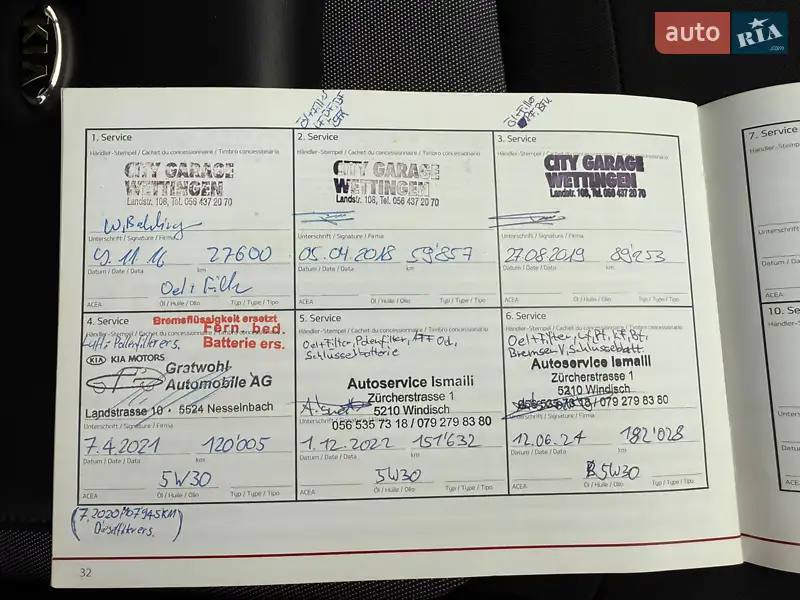 KIA
auto RIA .com
Öl+Filter
Öl+Filter
1. Service
Händler-Stempel / Cachet du concessionnaire / Timbro concessionario
CITY GARAGE
WETTINGEN
Landstr. 108, Tel. 056 437 20 70
Unterschrift / Signature / Firma
9.11.16 27600
Datum / Date / Data km
Oel + Filter
ACEA Öl / Huile / Olio Typ / Type / Tipo
2. Service
Händler-Stempel / Cachet du concessionnaire / Timbro concessionario
CITY GARAGE
WETTINGEN
Landstr. 108, Tel. 056 437 20 70
Unterschrift / Signature / Firma
05.04.2018 59'857
Datum / Date / Data km
ACEA Öl / Huile / Olio Typ / Type / Tipo
3. Service
Händler-Stempel / Cachet du concessionnaire / Timbro concessionario
CITY GARAGE
WETTINGEN
Landstr. 108, Tel. 056 437 20 70
Unterschrift / Signature / Firma
27.08.2019 89'253
Datum / Date / Data km
ACEA Öl / Huile / Olio Typ / Type / Tipo
4. Service
Bremsflüssigkeit ersetzt
Händler-Stempel / Cachet du concessionnaire / Timbro concessionario
Fern. bed.
Luft+Pollenfilter ers.
Batterie ers.
KIA KIA MOTORS
Gratwohl
Automobile AG
Landstrasse 10 • 5524 Nesselnbach
Unterschrift / Signature / Firma
7.4.2021 120'005
Datum / Date / Data km
5W30
ACEA Öl / Huile / Olio Typ / Type / Tipo
5. Service
Händler-Stempel / Cachet du concessionnaire / Timbro concessionario
Oel+Filter, Polenfilter,
Schlüsselbatterie
Autoservice Ismaili
Zürcherstrasse 1
5210 Windisch
056 535 73 18 / 079 279 83 80
Unterschrift / Signature / Firma
1.12.2022 151'632
Datum / Date / Data km
5W30
ACEA Öl / Huile / Olio Typ / Type / Tipo
6. Service
Händler-Stempel / Cachet du concessionnaire / Timbro concessionario
Oel+Filter, Lf, Pf, Kf, Bf,
Bremsen V, Schlüsselbatt.
Autoservice Ismaili
Zürcherstrasse 1
5210 Windisch
056 535 73 18 / 079 279 83 80
Unterschrift / Signature / Firma
12.06.24 182'028
Datum / Date / Data km
5W30
ACEA Öl / Huile / Olio Typ / Type / Tipo
Dieselfilter ers.
32
7. Service
Händler-Stemp
Unterschrift
Datum / Da
ACEA
10. Ser
Händler-St
Untersch
Datum
ACEA